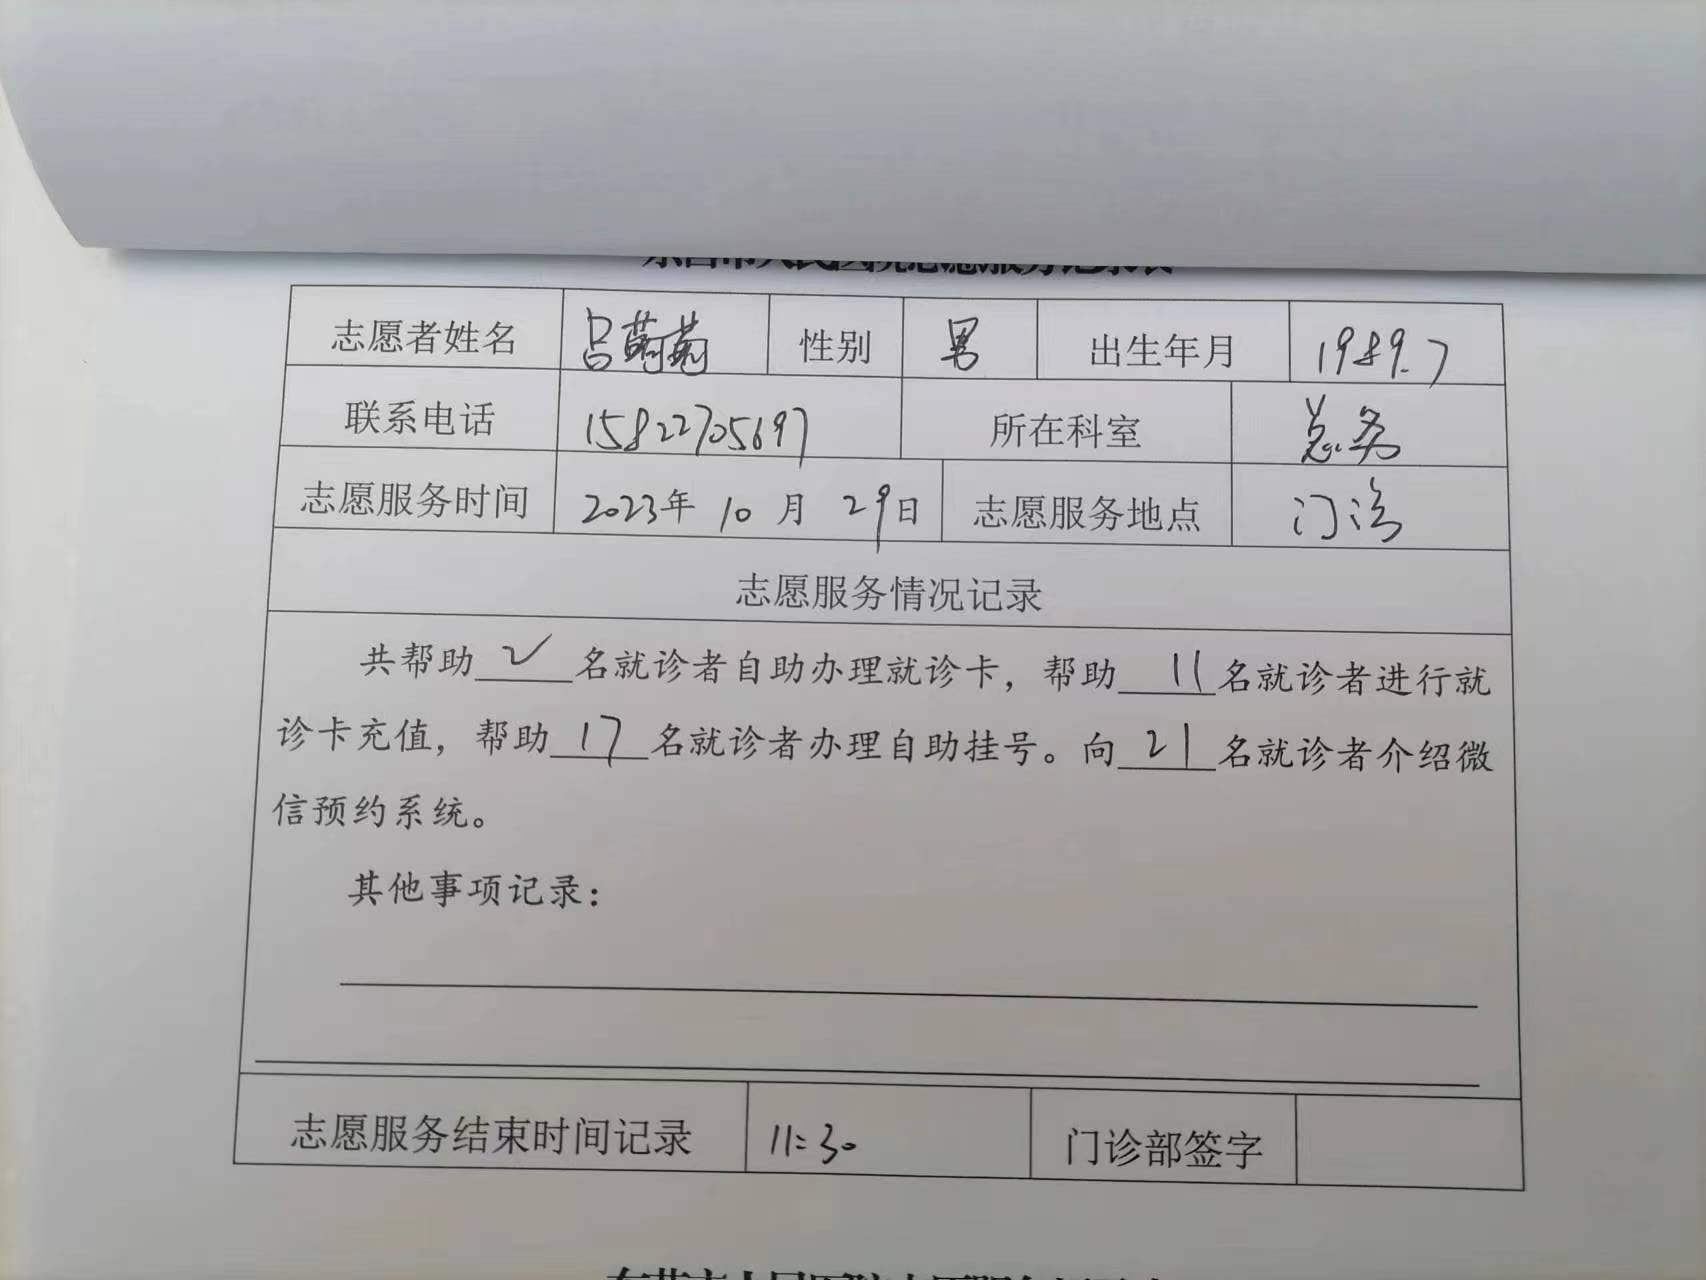 志愿者姓名 吕菊菊 性别 男 出生年月 1989.7
联系电话 15822705697 所在科室 总务
志愿服务时间 2023年 10 月 29日 志愿服务地点 门诊
志愿服务情况记录
共帮助 2 名就诊者自助办理就诊卡，帮助 11 名就诊者进行就
诊卡充值，帮助 17 名就诊者办理自助挂号。向 21 名就诊者介绍微
信预约系统。
其他事项记录：
志愿服务结束时间记录 11:30 门诊部签字